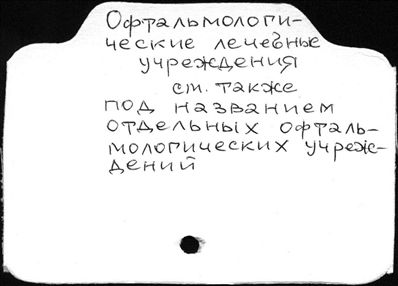 Офтальмологи-
ческие лечебные
учреждения
см. также
под названием
отдельных офталь-
мологических учреж-
дений